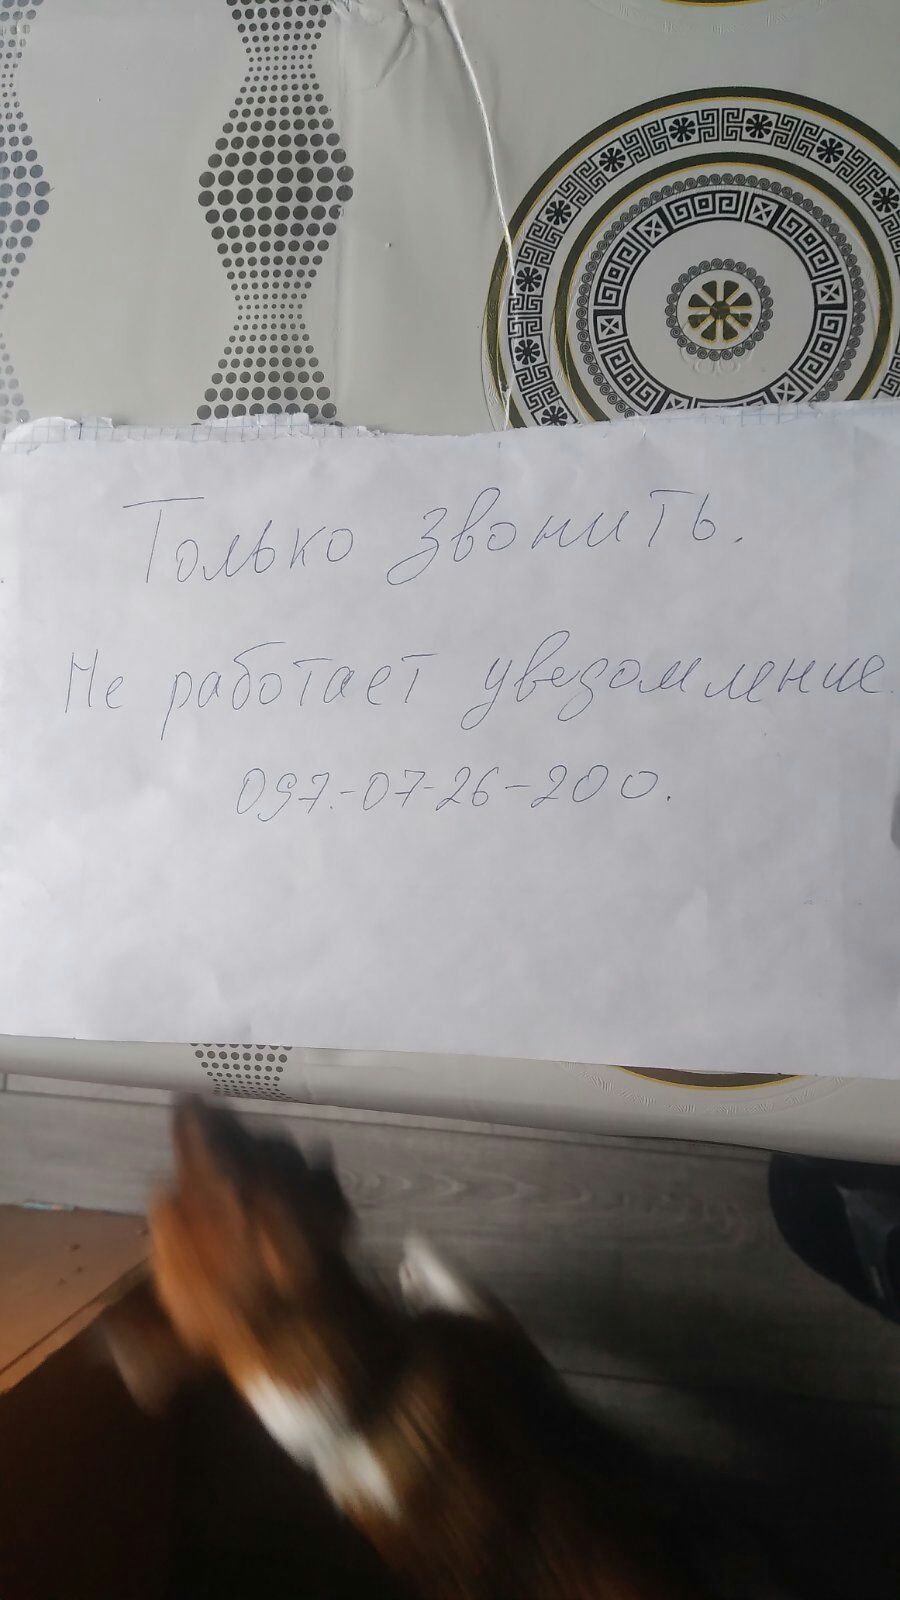 Только звонить.
Не работает уведомление.
097.-07-26-200.